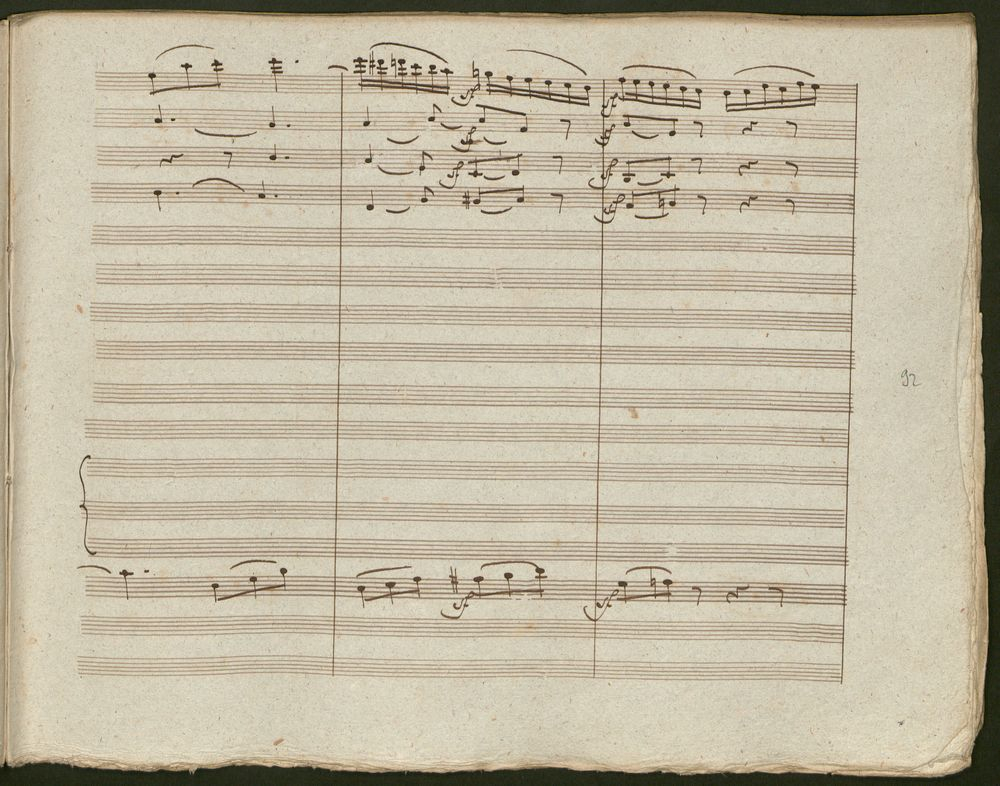 sf sf
sf sf
sf sf
sf
92
sf sf